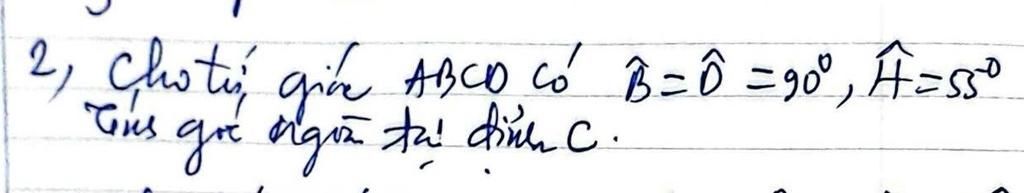 2, Cho tứ giác ABCD có B̂ = D̂ = 90⁰, Â = 55⁰
Tính góc ngoài tại đỉnh C.